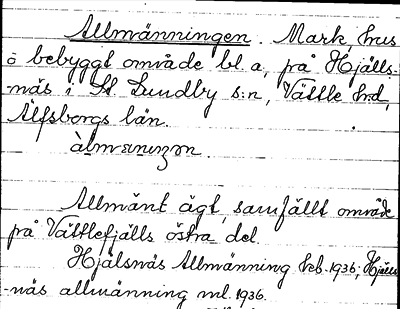 Allmänningen. Mark, hus
o bebyggt område bl a, på Hjälls-
-näs i St. Lundby s:n, Vättle hrd,
Älfsborgs län.
àlmɛnıŋɔn.
Allmänt ägt, samfällt område
på Vättlefjälls östra del.
Hjälsnäs Allmänning keb. 1936; Hjälls
-näs allmänning ml. 1936.